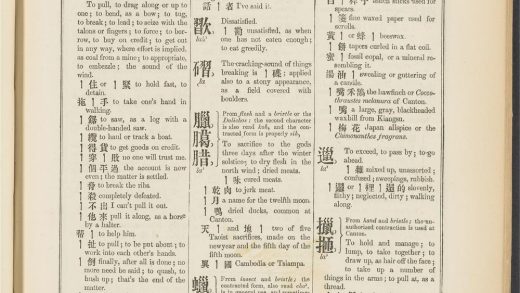 To pull, to drag along or up to
one; to bend, as a bow; to tug,
to break; to lead; to seize with the
talons or fingers; to force; to bor-
row, to buy on credit; to get out
in any way, where effort is implied,
as coal from a mine; to appropriate,
to embezzle; the sound of the
wind.
住 or 緊 to hold fast, to
detain.
拖 手 to take one's hand in
walking.
鋸 to saw, as a log with a
double-handed saw.
纜 to haul or track a boat.
得貨 to get goods on credit.
穿 殼 no one will trust me.
個平過 the account is now
even; the matter is settled.
脅 to break the ribs.
殺 completely defeated.
不出 I can't pull it out.
他來 pull it along, as a horse
by a halter.
幫 to help him.
扯 to pull; to be put about; to
work into each other's hands.
倒 finally, after all is done; no
more need be said; to quash, to
hush up; that's the end of the
matter.
話 者 I've said it.
Dissatisfied.
勸 unsatisfied, as when
one has not eaten enough;
to eat greedily.
磖
la
The cracking-sound of things
breaking is 磼; applied
also to a stony appearance,
as a field covered with
boulders.
臘
臈
腊
la
From flesh and a bristle or the
second character
is also read and the con-
tracted form is properly sih,
To sacrifice to the gods
three days after the winter
solstice; to dry flesh in the
north wind; dried meats.
味 cured meats.
乾肉 to jerk meat.
月 a name for the twelfth moon.
鴨 dried ducks, common at
Canton.
天 地 two of five
Taoist sacrifices, made on the
newyear and the fifth day of the
fifth moon.
異 國 Cambodia or Tsiampa.
蠟
From insect and bristle; the
contracted form, also read
is in general use, and sometimes
sticks used for
spears.
箋 fine waxed paper used for
scrolls.
黃 or 蜂 beeswax.
餅 tapers curled in a flat coil.
蜜 fossil copal, or a mineral re-
sembling it.
湯油 sweating or guttering of
a candle.
嘴 the hawfinch or Cocco-
thraustes melanura of Canton.
嘴 a large, gray, blackheaded
waxbill from Kiangsu.
梅花 Japan allspice or the
Chimonanthes fragrans.
邋
la
To exceed, to pass by; to go
ahead.
雜 mixed up, unassorted;
confused; sweepings, rubbish.
邋 or 裡 遢 的 slovenly,
filthy; neglected, dirty; walking
along.
擸
la
From hand and bristle; the un-
authorized contraction is used at
Canton.
To hold and manage; to
lump, to take together; to
draw up, as hair off the face;
to take up a number of
things in the arms; to pull at, as a
thread.